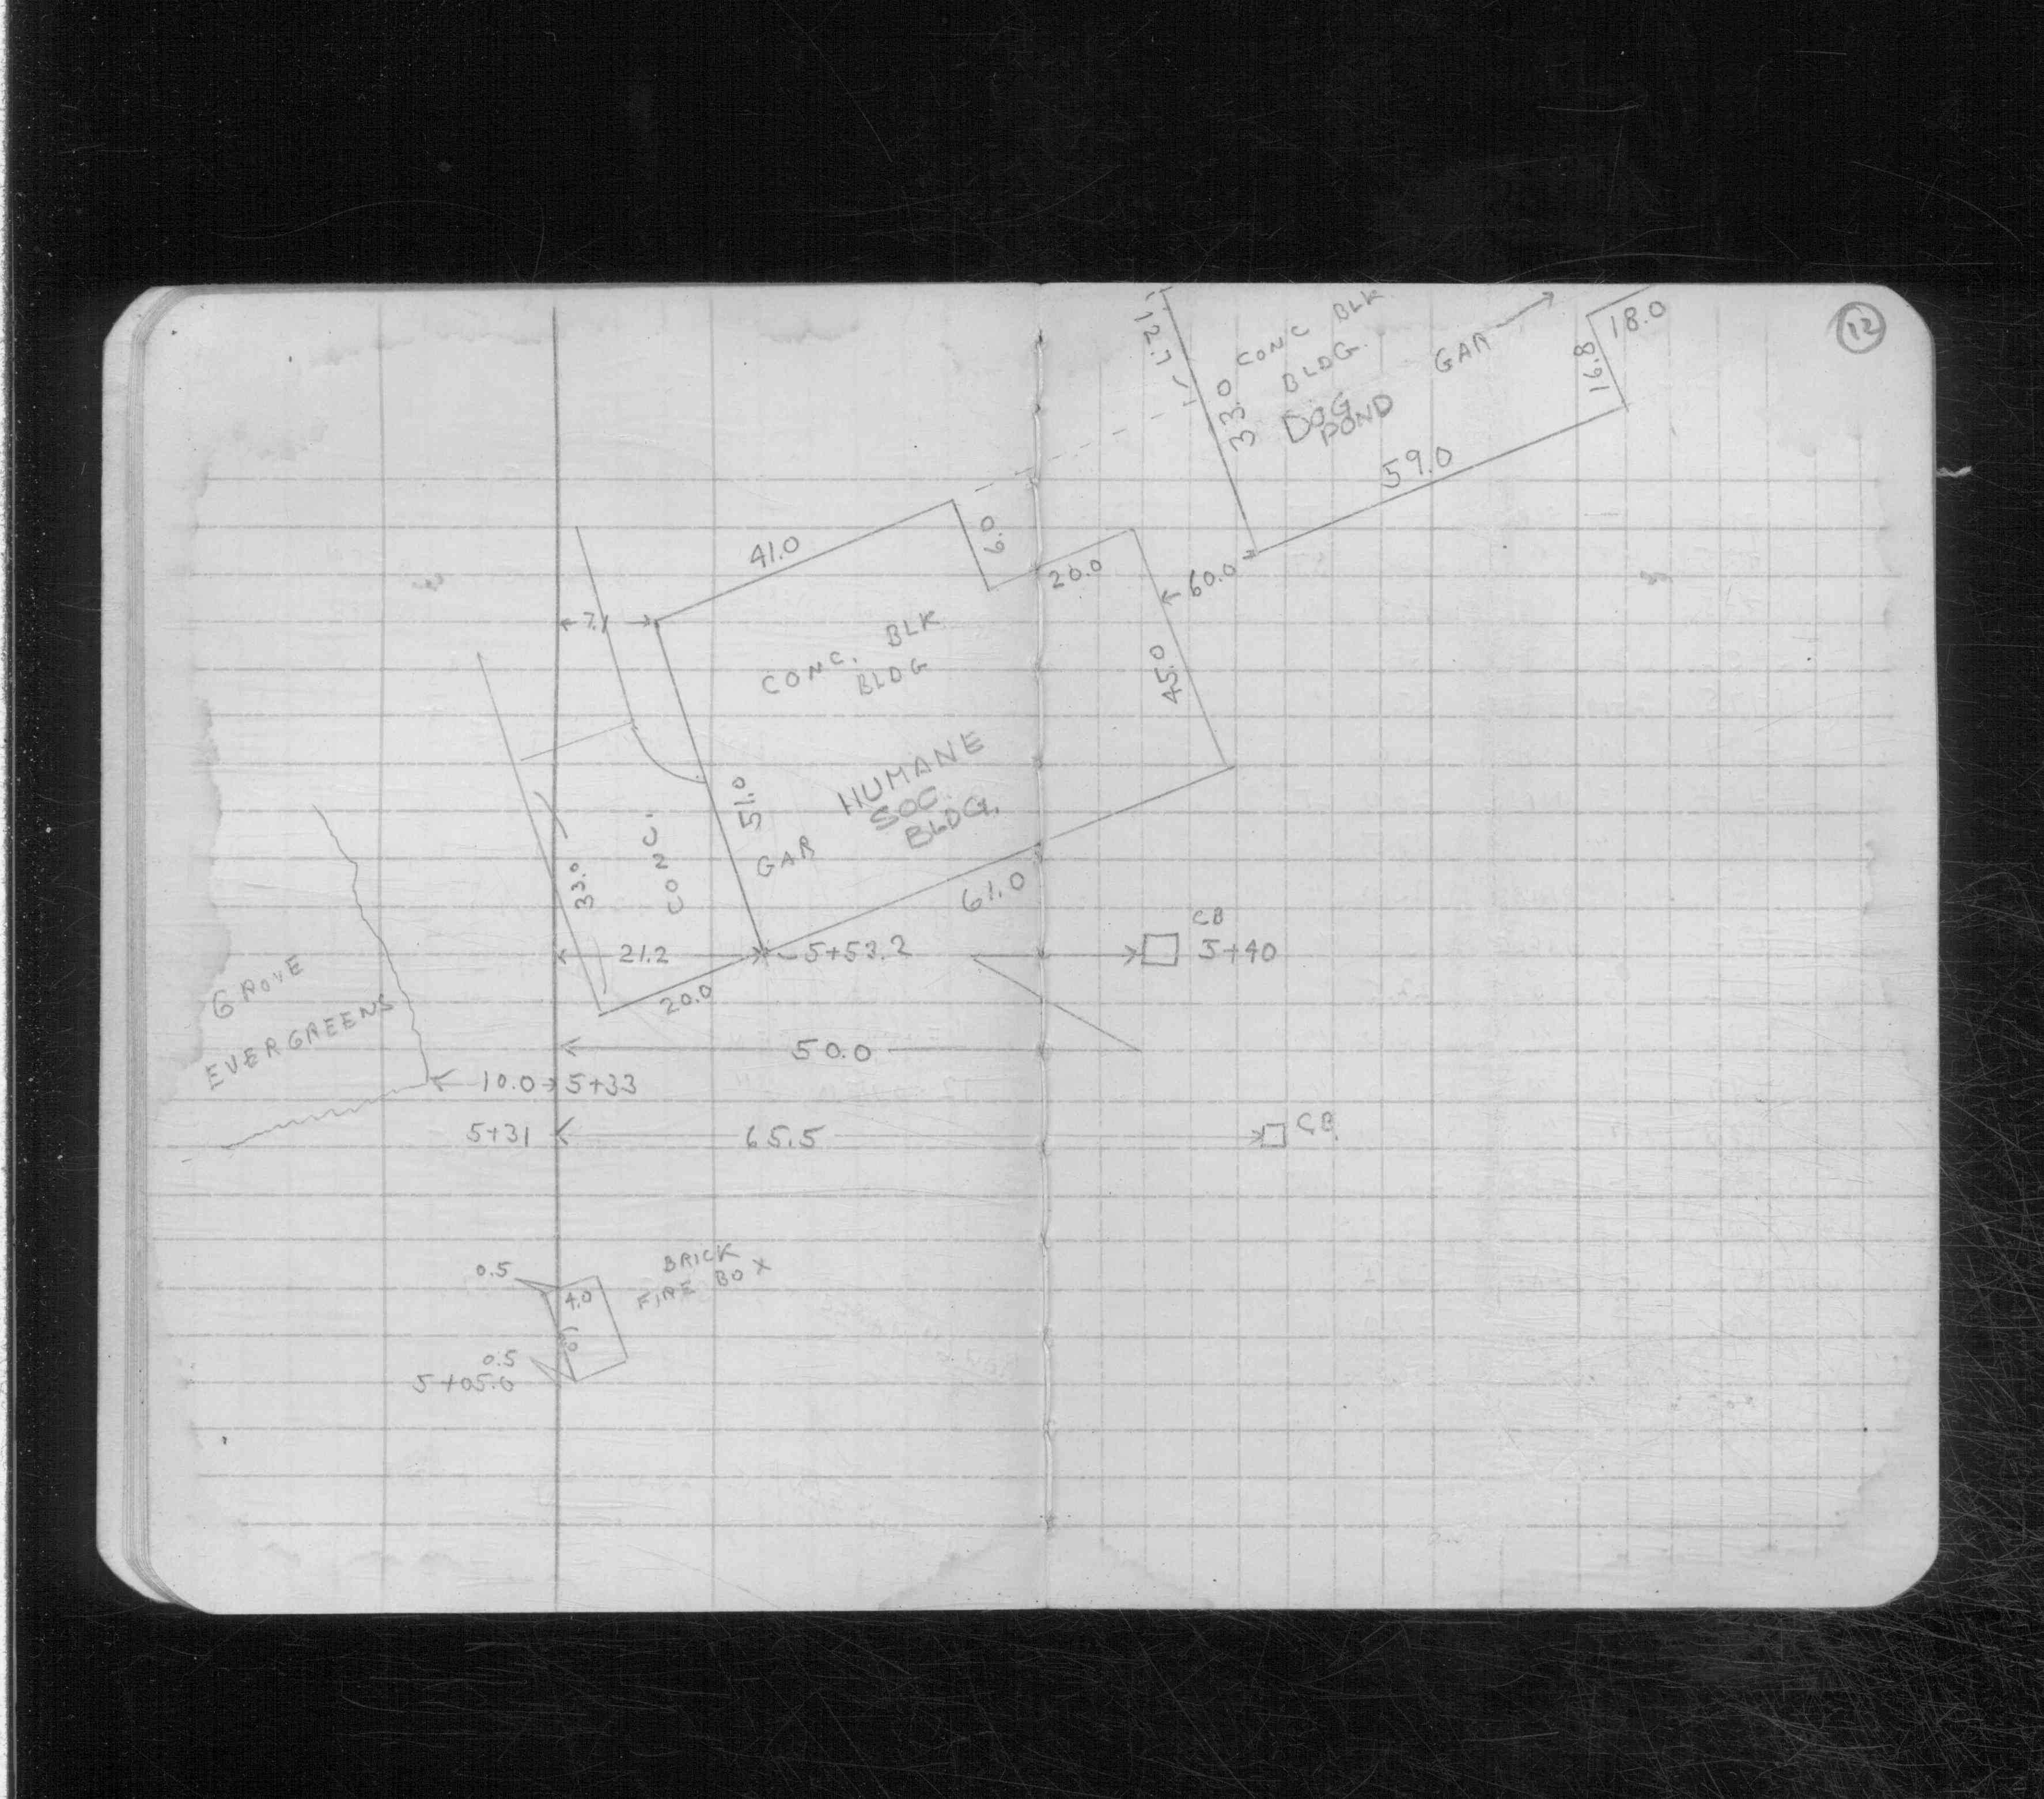 12
18.0
16.8
12.7
33.0
CONC BLK
BLDG.
DOG
POND
GAR
59.0
60.0
41.0
6.0
20.0
45.0
7.1
CONC. BLK
BLDG
HUMANE
SOC.
BLDG.
51.0
GAR
CONC.
33.0
61.0
21.2
5+53.2
CB
5+40
20.0
GROVE
EVERGREENS
50.0
10.0
5+33
5+31
65.5
CB
BRICK
FIRE BOX
0.5
4.0
0.5
5+05.0